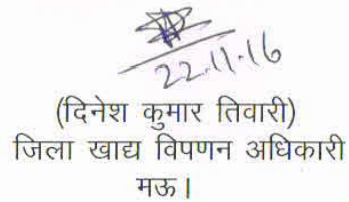 22.11.16
(दिनेश कुमार तिवारी)
जिला खाद्य विपणन अधिकारी
मऊ।